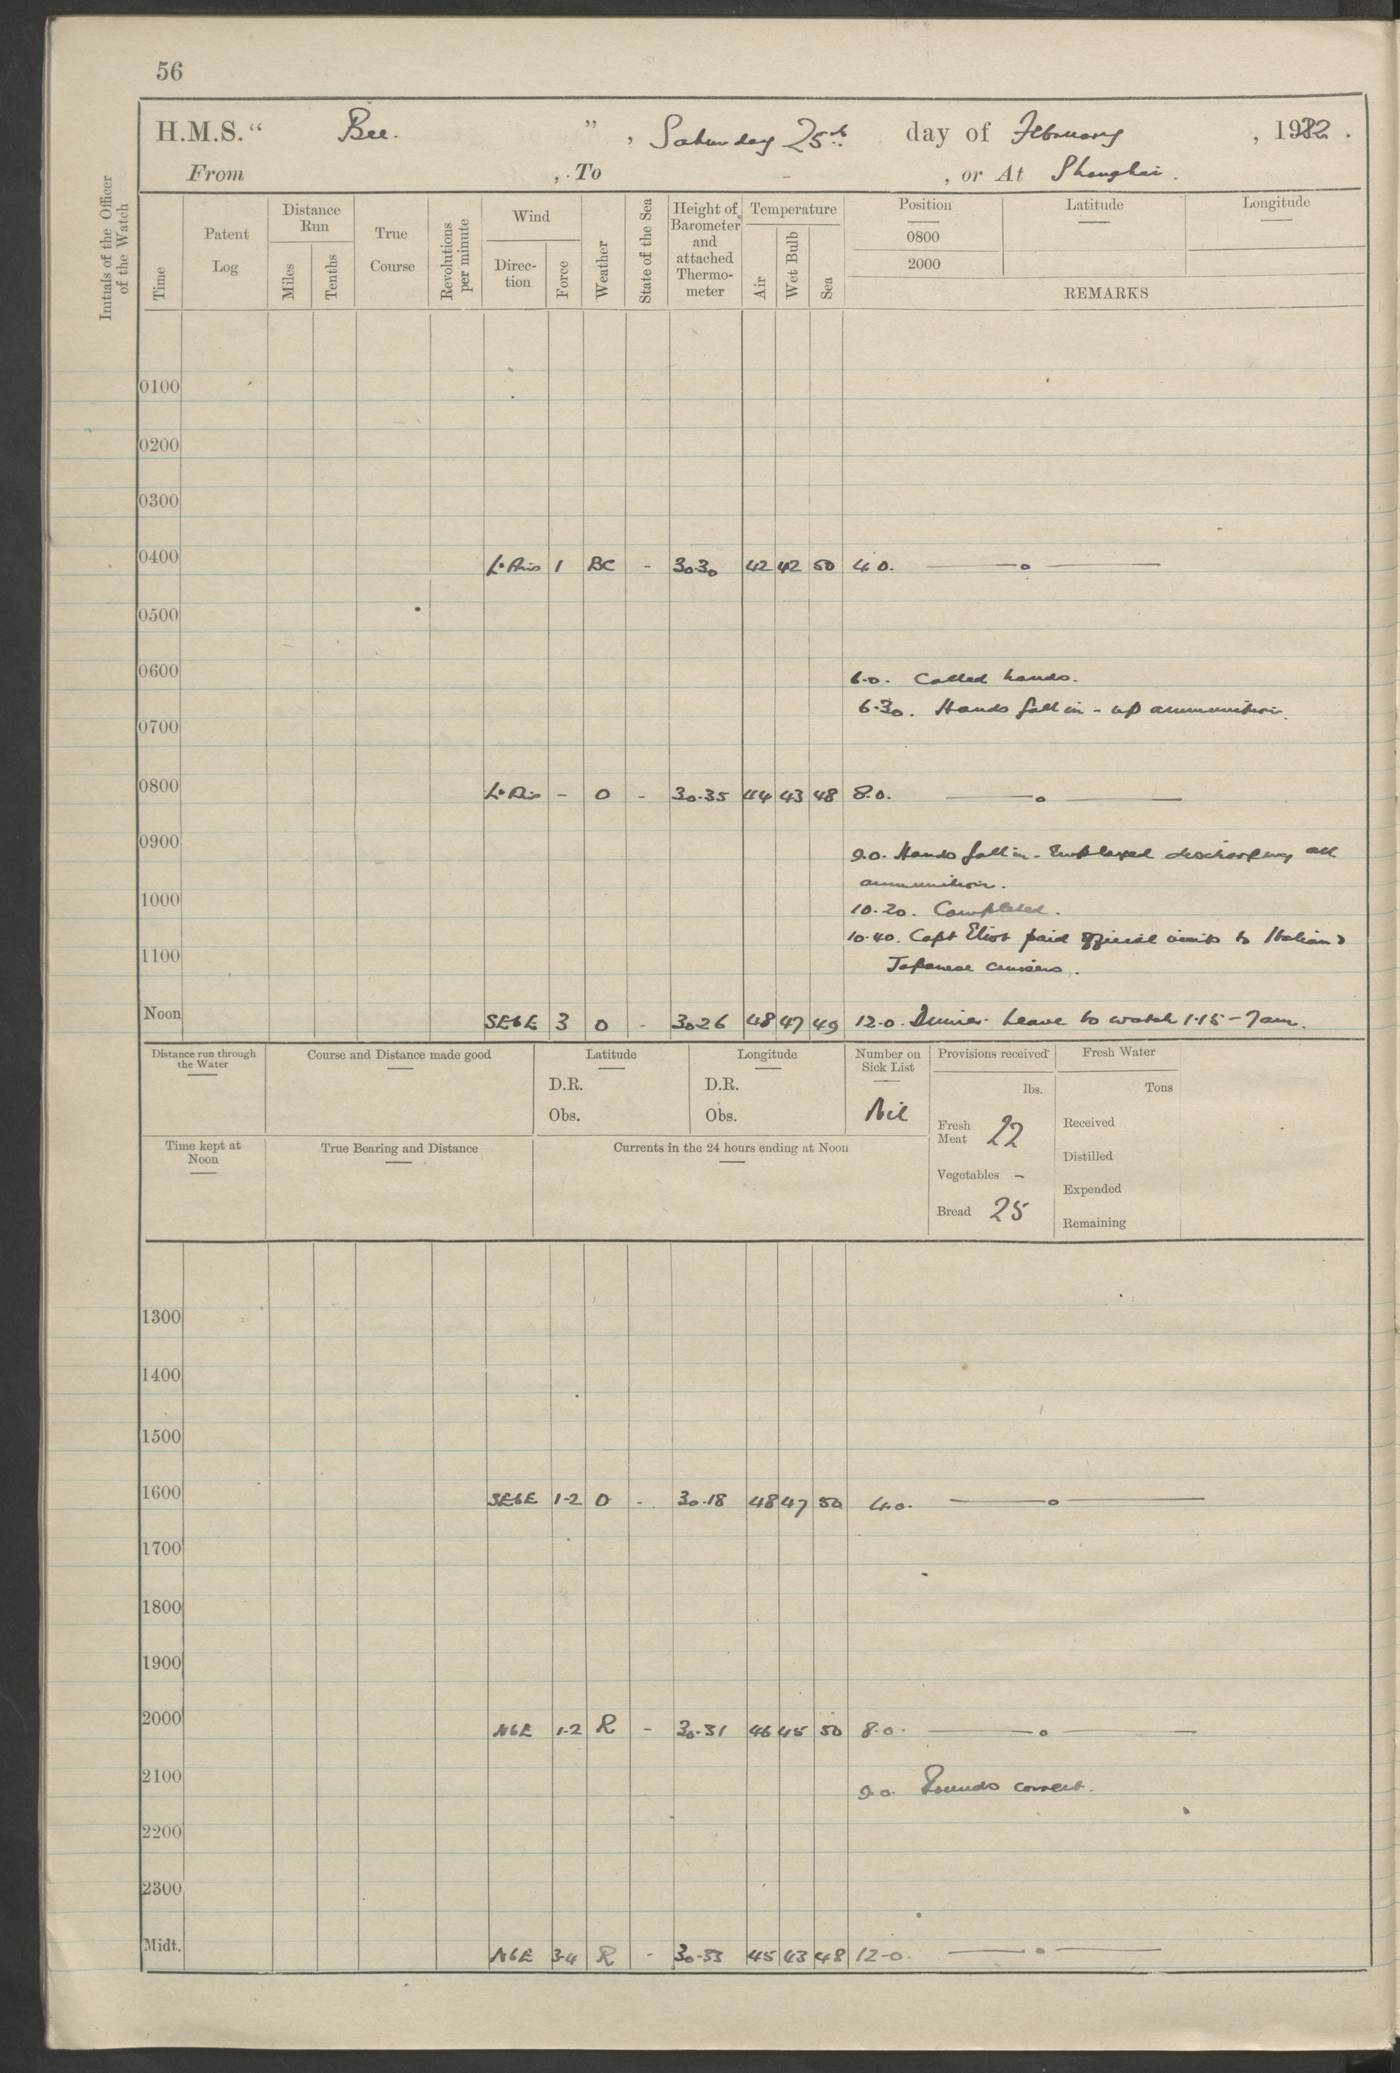 56
H.M.S. " Bee. ", Saturday 25th day of February, 1922.
From , To - , or At Shanghai.
Initials of the Officer of the Watch
Time
Patent Log
Distance Run
Miles
Tenths
True Course
Revolutions per minute
Wind
Direc-tion
Force
Weather
State of the Sea
Height of Barometer and attached Thermo-meter
Temperature
Air
Wet Bulb
Sea
Position
0800
2000
Latitude
Longitude
REMARKS
0100
0200
0300
0400 Lt Airs 1 BC - 30.30 42 42 50 4.0.
0500
0600 6.0. Called hands.
6.30. Hands fall in - up ammunition.
0700
0800 Lt Airs - O - 30.35 44 43 48 8.0.
0900 9.0. Hands fall in - Employed discharging all
ammunition.
1000 10.20. Completed.
10.40. Capt Eliot paid official visits to Italian &
1100 Japanese cruisers.
Noon SEbE 3 O - 30.26 48 47 49 12.0. Dinner. Leave to watch 1.15 - 7am.
Distance run through the Water
Course and Distance made good
Latitude
D.R.
Obs.
Longitude
D.R.
Obs.
Number on Sick List
Nil
Provisions received
lbs.
Fresh Meat 22
Vegetables -
Bread 25
Fresh Water
Tons
Received
Distilled
Expended
Remaining
Time kept at Noon
True Bearing and Distance
Currents in the 24 hours ending at Noon
1300
1400
1500
1600 SEbE 1-2 O - 30.18 48 47 50 4.0.
1700
1800
1900
2000 NbE 1-2 R - 30.31 46 45 50 8.0.
2100 9.0. Rounds correct.
2200
2300
Midt. NbE 3-4 R - 30.33 45 43 48 12-0.